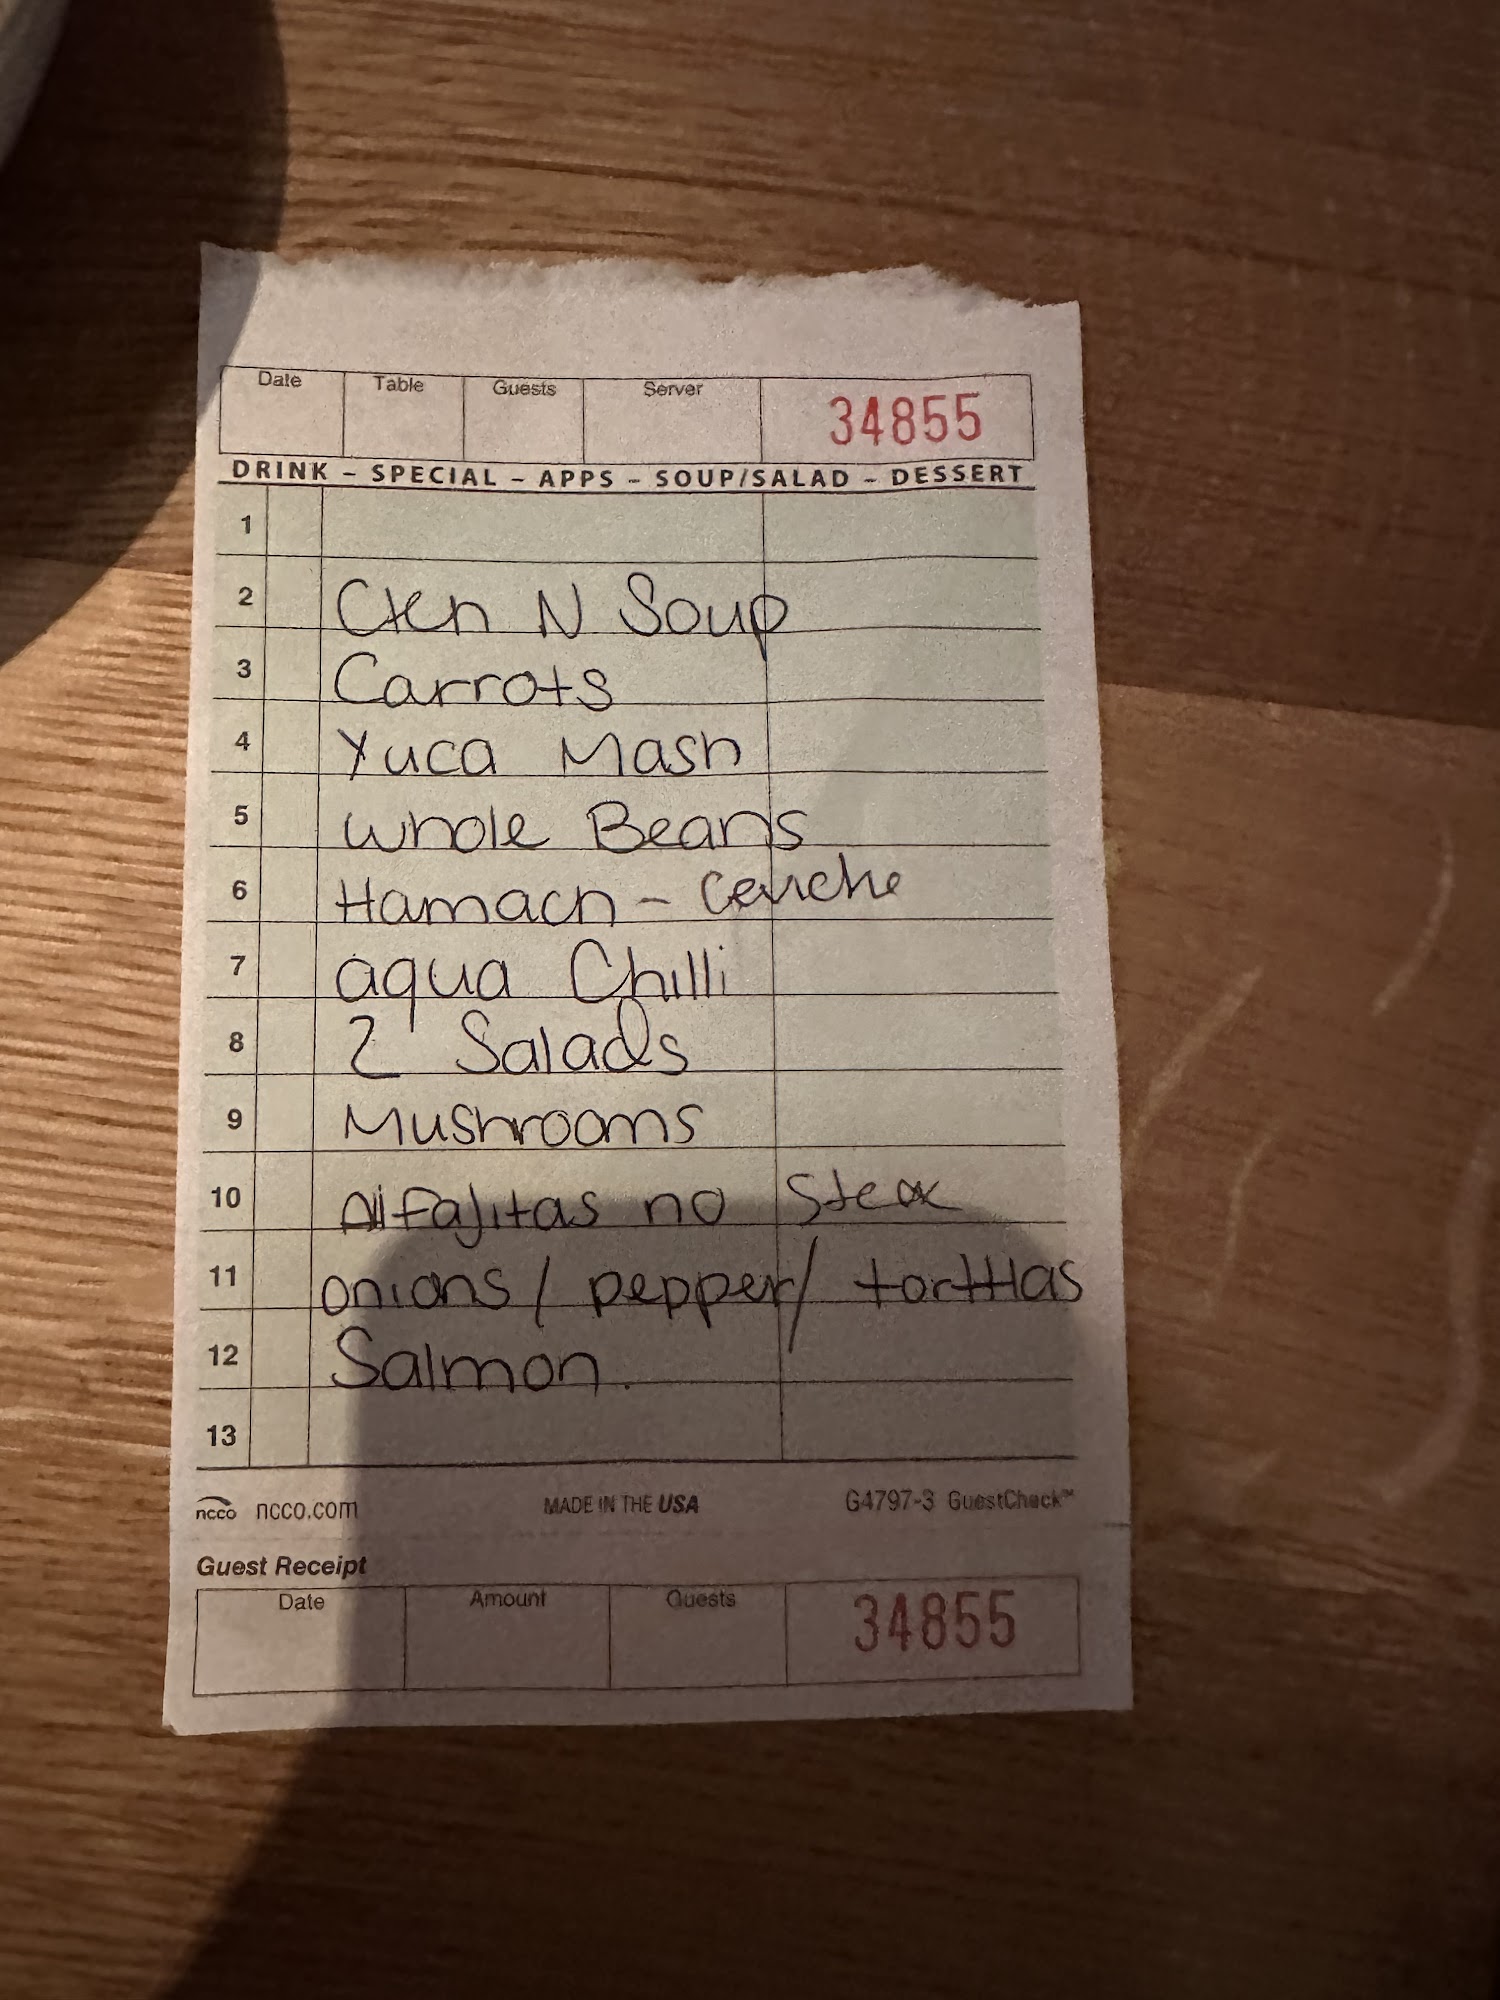 Date Table Guests Server 34855
DRINK – SPECIAL – APPS – SOUP/SALAD – DESSERT
1
2 Cken N Soup
3 Carrots
4 Yuca Mash
5 whole Beans
6 Hamach – Ceviche
7 aqua Chilli
8 2 Salads
9 Mushrooms
10 All Fajitas no Steak
11 onions / pepper / tortillas
12 Salmon.
13
ncco ncco.com MADE IN THE USA G4797-3 GuestCheck™
Guest Receipt
Date Amount Guests 34855